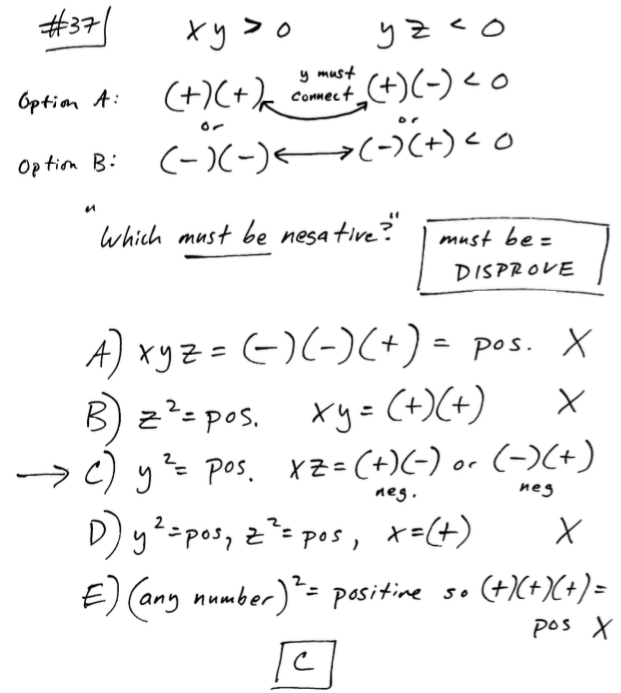 #37 xy > 0 yz < 0
Option A: (+)(+) y must connect (+)(-) < 0
or or
Option B: (-)(-) ⟷ (-)(+) < 0
"Which must be negative?" must be = DISPROVE
A) xyz = (-)(-)(+) = pos. X
B) z² = pos. xy = (+)(+) X
→ C) y² = pos. xz = (+)(-) or (-)(+)
neg. neg
D) y² = pos, z² = pos, x = (+) X
E) (any number)² = positive so (+)(+)(+) =
pos X
C